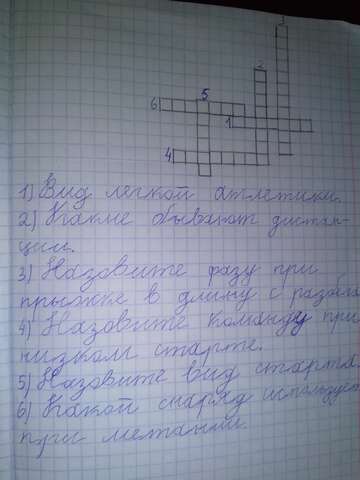 3
2
5
6
1
4
1) Вид легкой атлетики.
2) Какие бывают дистан-
ции.
3) Назовите фазу при
прыжке в длину с разбега
4) Назовите команду при
низком старте.
5) Назовите вид старта
6) Какой снаряд использует
при метании.